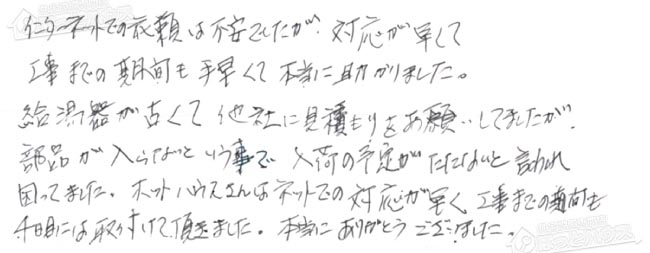 インターネットでの依頼は不安でしたが、対応が早くて
工事までの期間も手早くて本当に助かりました。
給湯器が古くて他社に見積もりをお願いしてましたが、
部品が入らないという事で入荷の予定がたたないと言われ
困ってました。ホットハウスさんはネットでの対応が早く工事までの期間も
4日目には取り付けて頂きました。本当にありがとうございました。